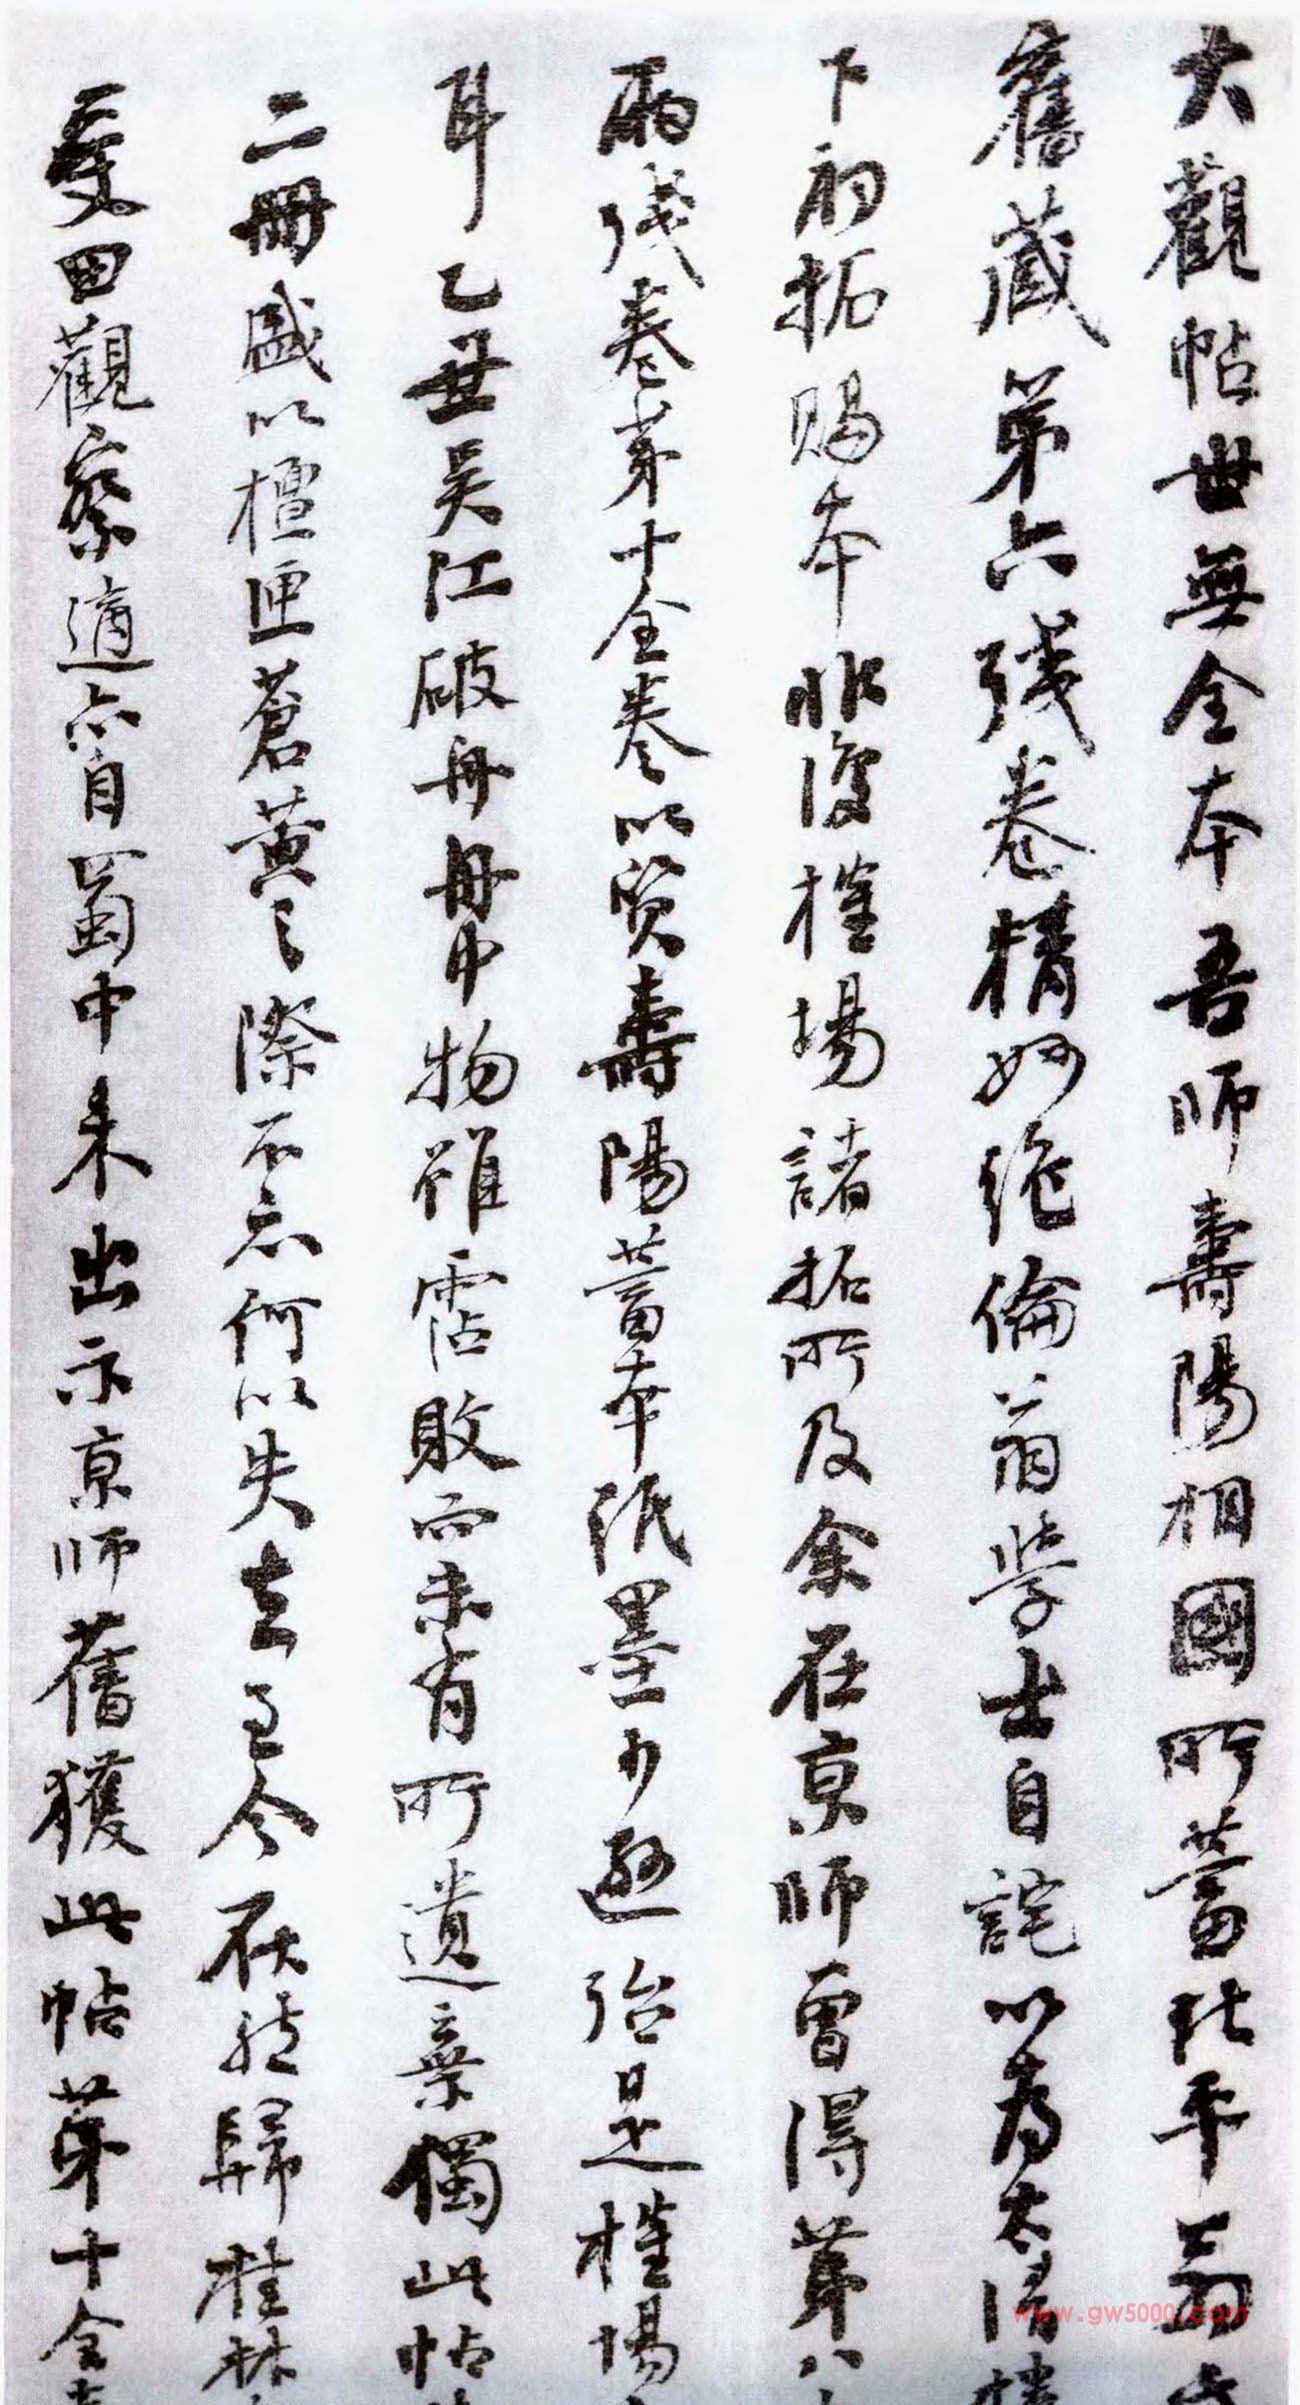 大觀帖世無全本吾師壽陽相國所蓄北平翁氏
舊藏第六殘卷精妙絕倫翁學士自詫以為太清樓
下初拓賜本非復榷場諸拓所及余在京師曾得第八
兩殘卷第十全卷以質壽陽蓄本紙墨少遜殆是榷場
耳乙丑吳江破舟舟中物雖霑敗而未有所遺棄獨此帖
二冊盛以檀匣蒼黃之際不忘何以失去至今在 歸桂林
田觀察適亦自蜀中來出示京師舊獲此帖第十全
www.gw5000.com